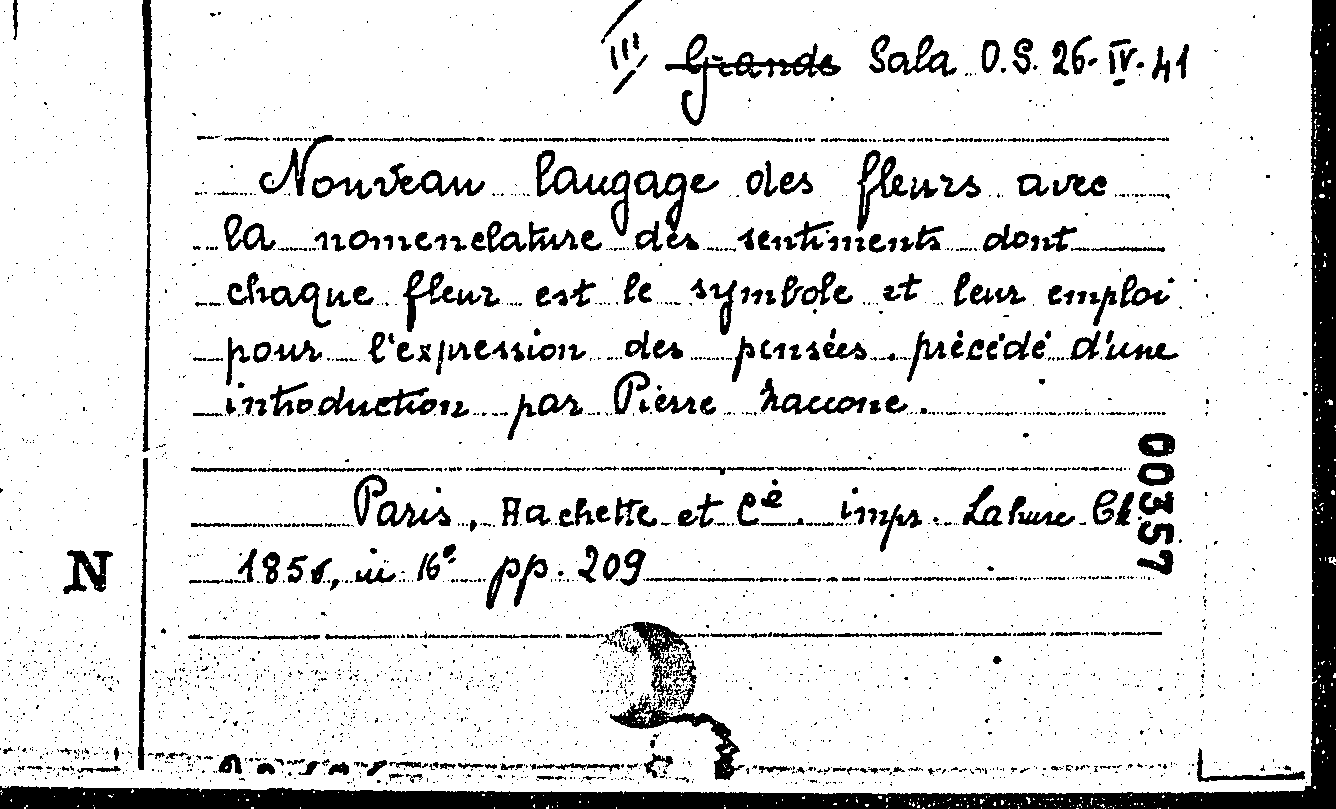 III ~~Grande~~ Sala O.S. 26-IV-41
Nouveau langage des fleurs avec
la nomenclature des sentiments dont
chaque fleur est le symbole et leur emploi
pour l'expression des pensées. précédé d'une
introduction par Pierre Zaccone.
Paris, Hachette et Cie. impr. Lahure Ch.
in 16° pp. 209
N
00357